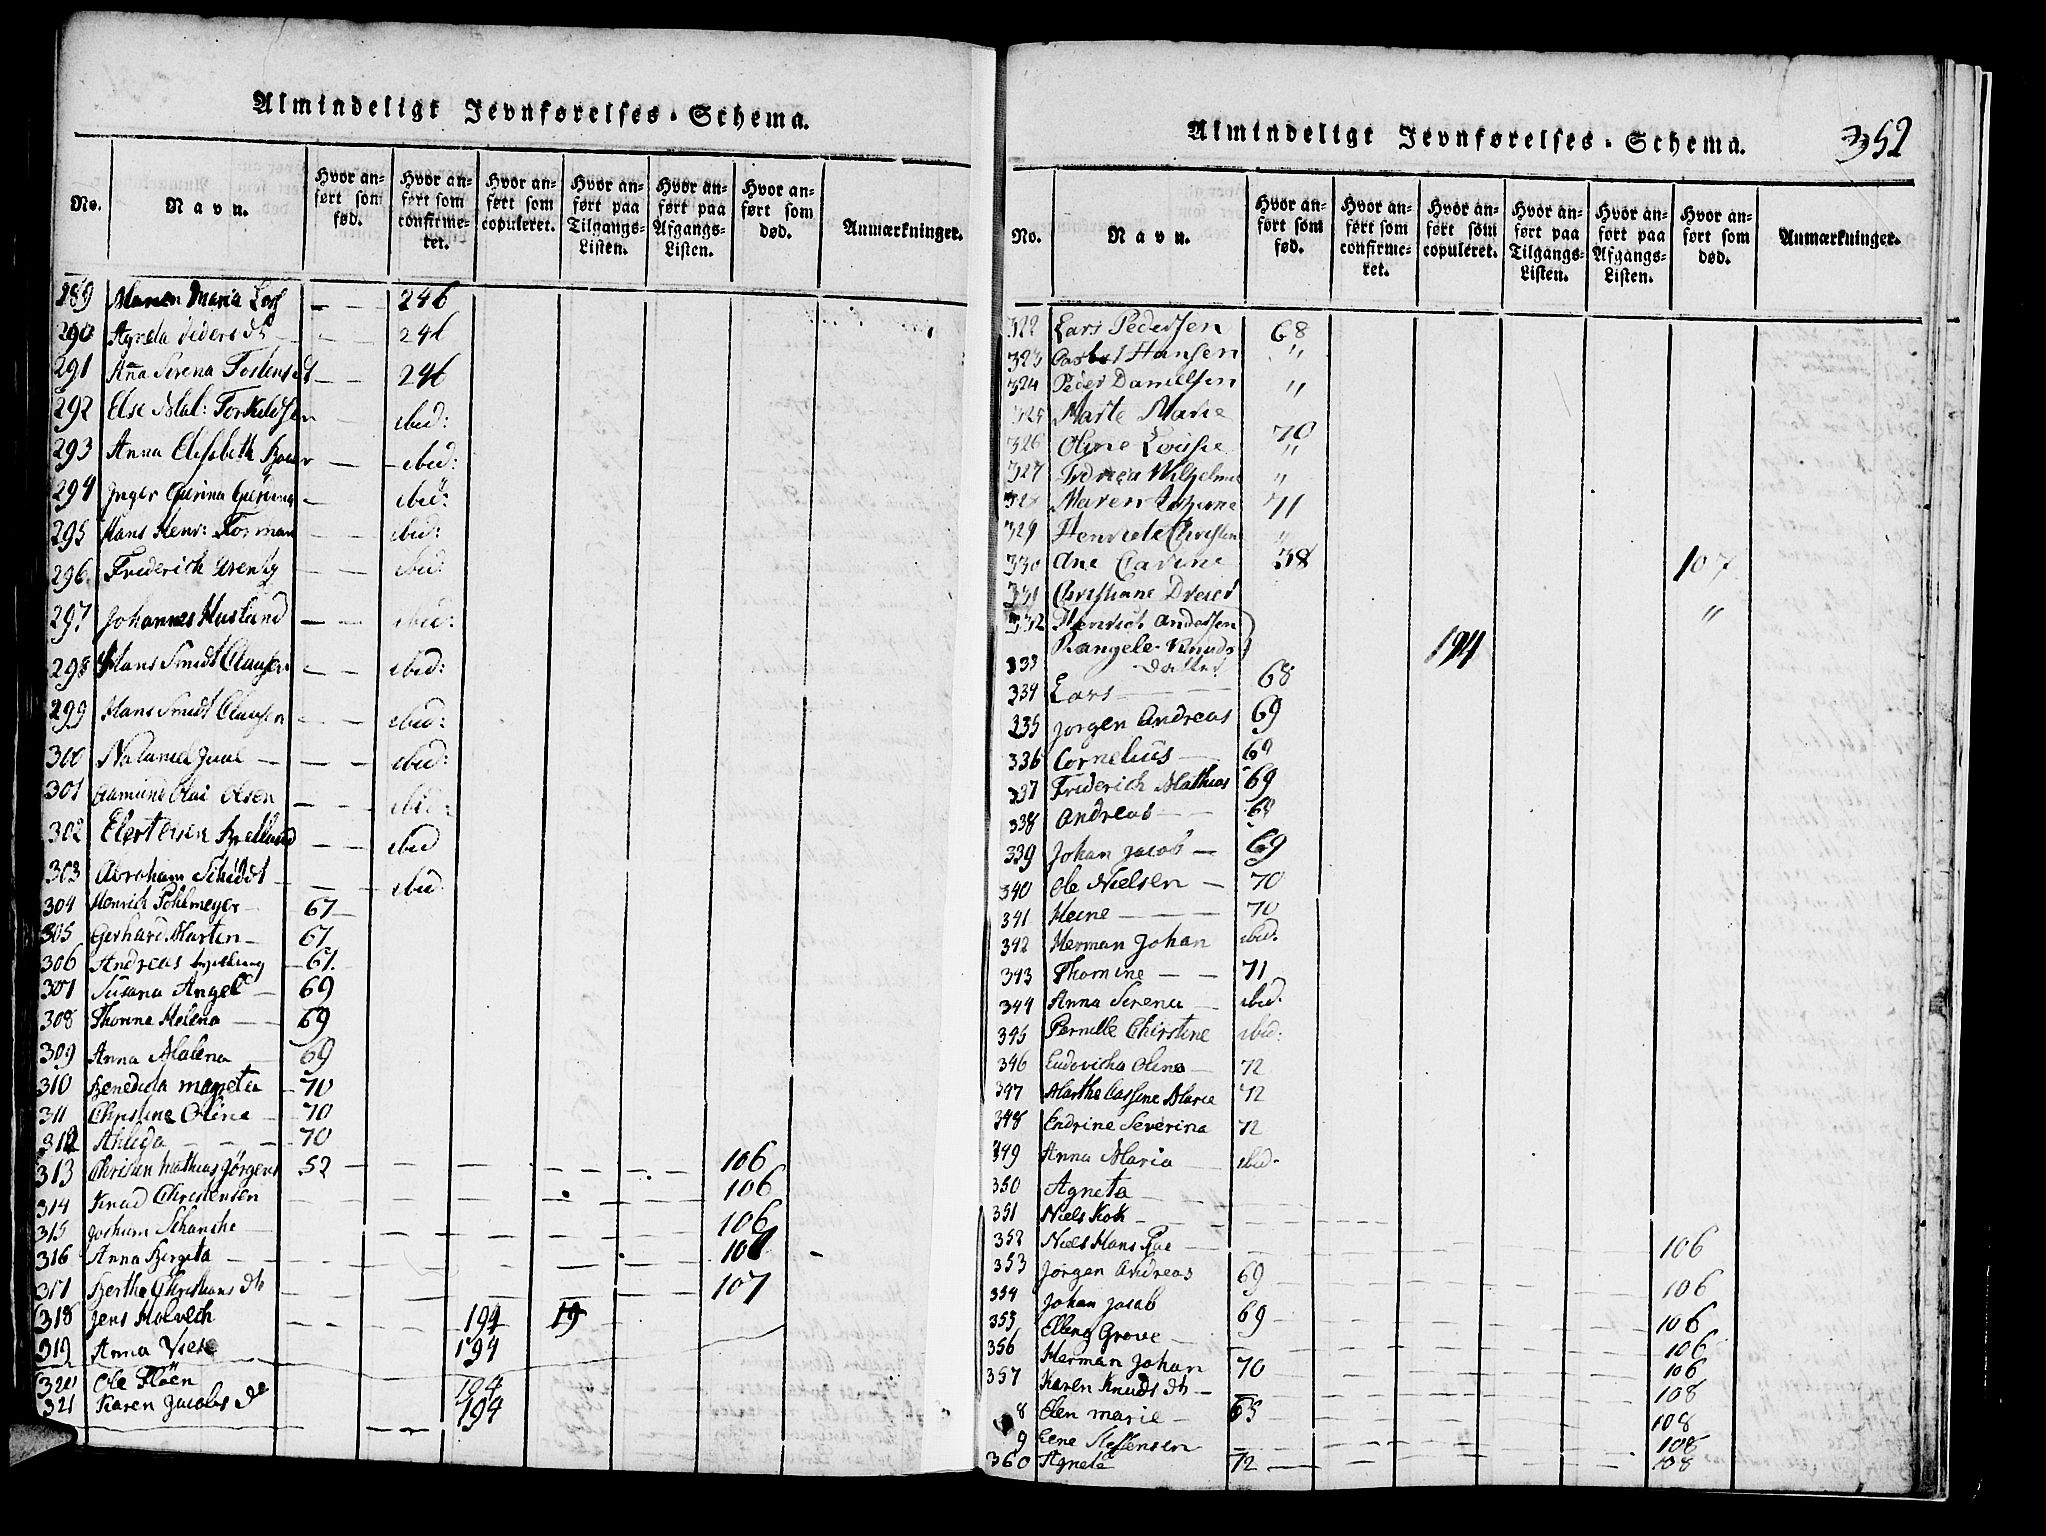 Almindeligt Jevnførelses-Schema.
No. Navn. Hvor anført som fød. Hvor anført som confirmeret. Hvor anført som copuleret. Hvor anført paa Tilgangs-Listen. Hvor anført paa Afgangs-Listen. Hvor anført som død. Anmærkninger.
289 Maren Maria — — 246
290 Agneta Peders dt — — 246
291 Anna Serena dt — — 246
292 Else Mal: Torkildsen ibid:
293 Anna Elisabeth — — ibid:
294 Inger Gurina — ibid:
295 Hans Henr: Forman — — ibid:
296 Friderich — — ibid:
297 Johannes Husland — — ibid:
298 Hans Smidt Clausen — — ibid:
299 Hans Smidt Clausen — — ibid:
300 Nataniel Juul — — — ibid:
301 Aamund Olai Olsen — — ibid:
302 — — ibid
303 Abraham Schiødt — — — ibid:
304 Henrich Pohlmeyer — 67 —
305 Gerhard Martin — 67
306 Andreas — 67.
307 Susana Angel — 69
308 Thomine Helena — 69
309 Anna Malena — 69
310 Benedicta Magreta — 70
311 Christine Oline — 70
312 — — — 70
313 Christen Mathias Jørgens 52 — — — — — 106
314 Knud Christensen — — — — — — 106
315 Jochum Schanche — — — — — — 106
316 Anna Bergeta — — — — — — 106
317 Bertha Christians dtr — — — — — 107
318 Jens 194 19
319 Anna Viese 194
320 Ole 194
321 Karen Jacobs dt 194
Almindeligt Jevnførelses-Schema. 352
No. Navn. Hvor anført som fød. Hvor anført som confirmeret. Hvor anført som copuleret. Hvor anført paa Tilgangs-Listen. Hvor anført paa Afgangs-Listen. Hvor anført som død. Anmærkninger.
322 Lars Pedersen 68
323 Hansen "
324 Peder Danielsen "
325 Marte Marie
326 Oline Lovise 70
327 Fredrica Wilhelmine "
328 Maren 71
329 Henriete Christine "
330 Ane Carine 38 107
331 Christiane Dreier
332 Henrich Andersen "
333 Rangele Knuds datter 194
334 Lars — — 68
335 Jørgen Andreas 69
336 Cornelius — 69
337 Friderich Mathias 69
338 Andreas — — 69
339 Johan Jacob — 69
340 Ole Nielsen — 70
341 Heine — — — 70
342 Herman Johan ibid.
343 Thomine — — 71
344 Anna Serena — ibid.
345 Pernille Christine ibid:
346 Ludovicka Olina — 72
347 Marthe Marie 72
348 Endrine Severina 72
349 Anna Maria — ibid.
350 Agneta —
351 Niels Kok —
352 Niels Hans — 106
353 Jørgen Andreas 69 — 106
354 Johan Jacob 69 — 106
355 Grove — 106
356 Herman Johan 70 — 106
357 Karen Knuds dtr — 108
8 Elen Marie — 65 108
9 Lene Steffensen 108
360 Agnete 72 — — — — — 108